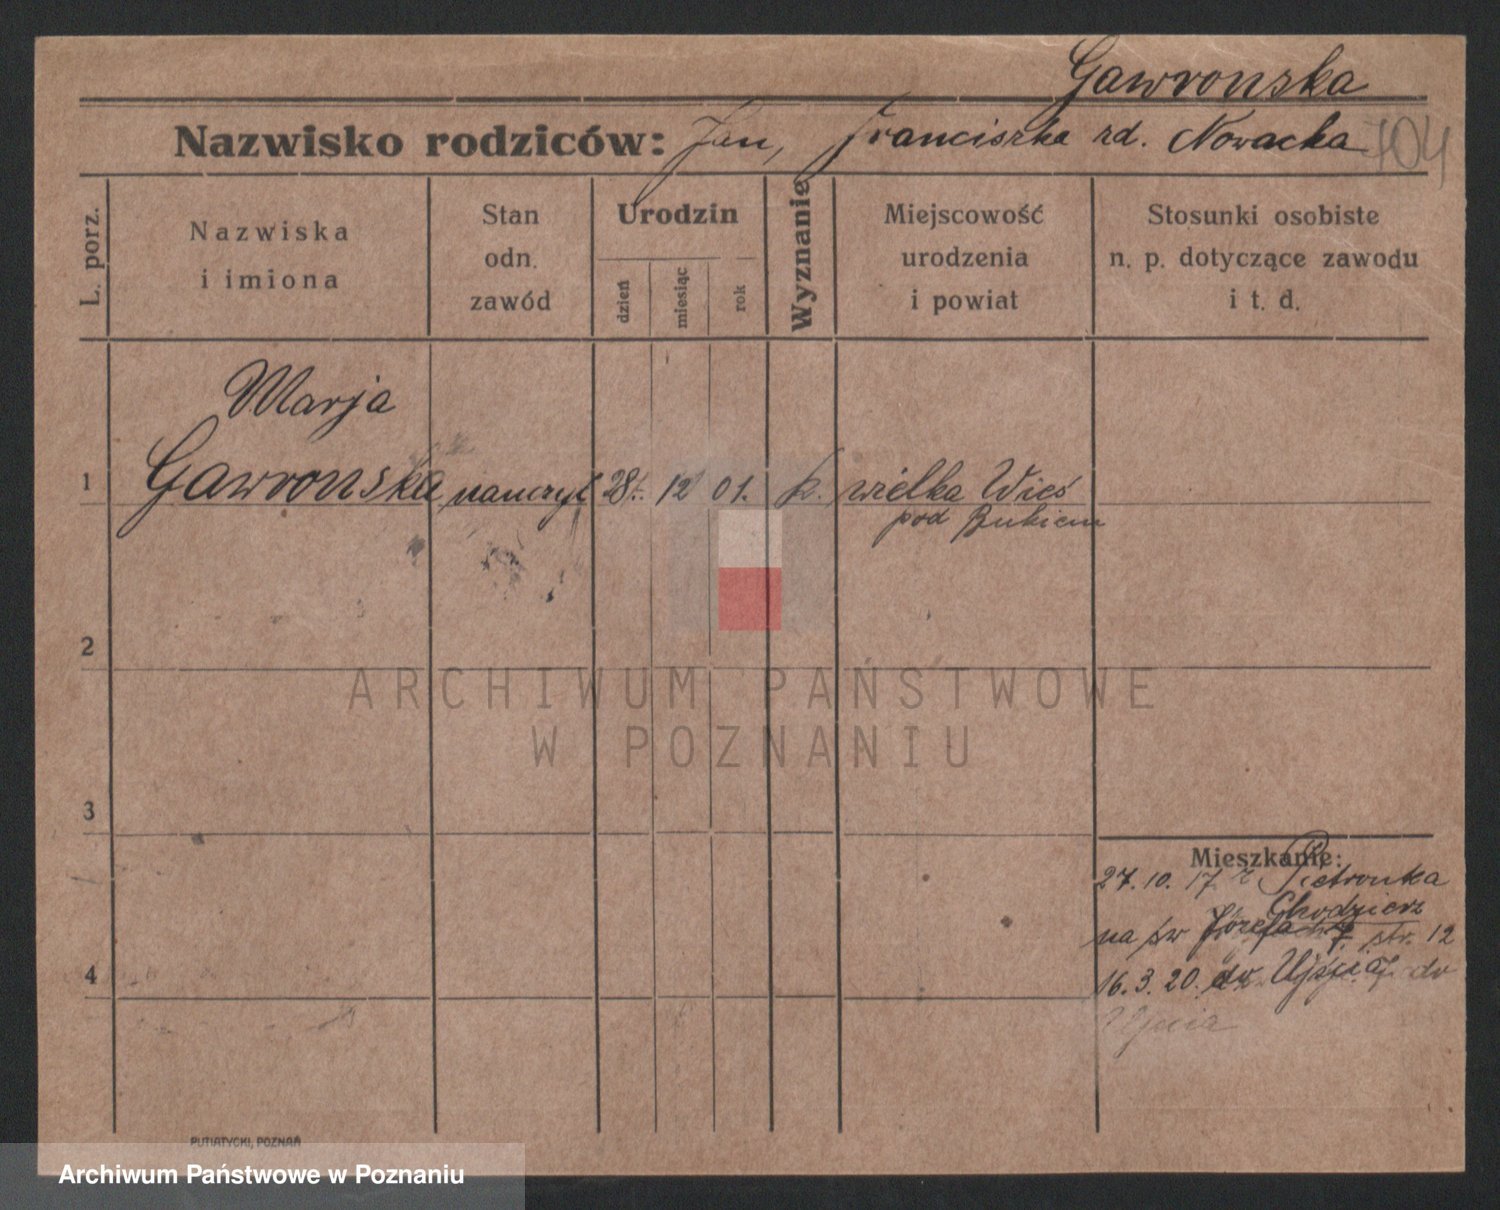 Gawronska
Nazwisko rodziców: Jan, Franciszka rd. Nowacka 104
L. porz.
Nazwiska
i imiona
Stan
odn.
zawód
Urodzin
dzień
miesiąc
rok
Wyznanie
Miejscowość
urodzenia
i powiat
Stosunki osobiste
n. p. dotyczące zawodu
i t. d.
Marja
1 Gawronska nauczyl 28. 12 01. k. wielka Wieś
pod Bukiem
2
3
4
Mieszkanie:
27. 10. 17. z Pietronka
Chodzierz
na św Józefa 7. str. 12
16. 3. 20. do Ujścia do
PUTIATYCKI, POZNAŃ
ARCHIWUM PAŃSTWOWE
W POZNANIU
Archiwum Państwowe w Poznaniu